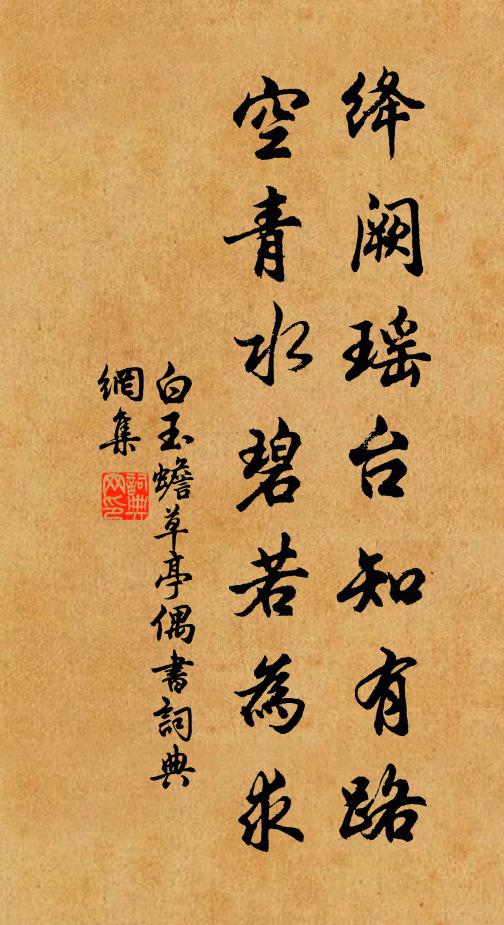 绛阙瑶台知有路
空青水碧若為求
白玉蟾草亭偶書詞典
網集
詞典
网印